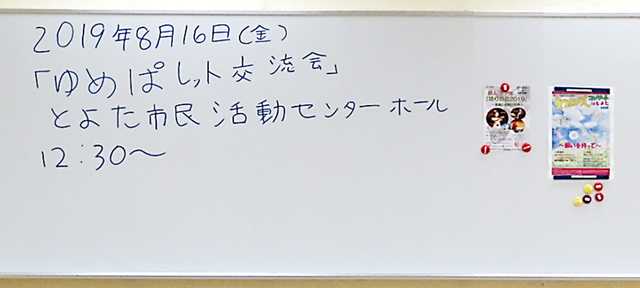 2019年8月16日(金)
「ゆめぱレット交流会」
とよた市民活動センターホール
12:30～
～願いを持って～